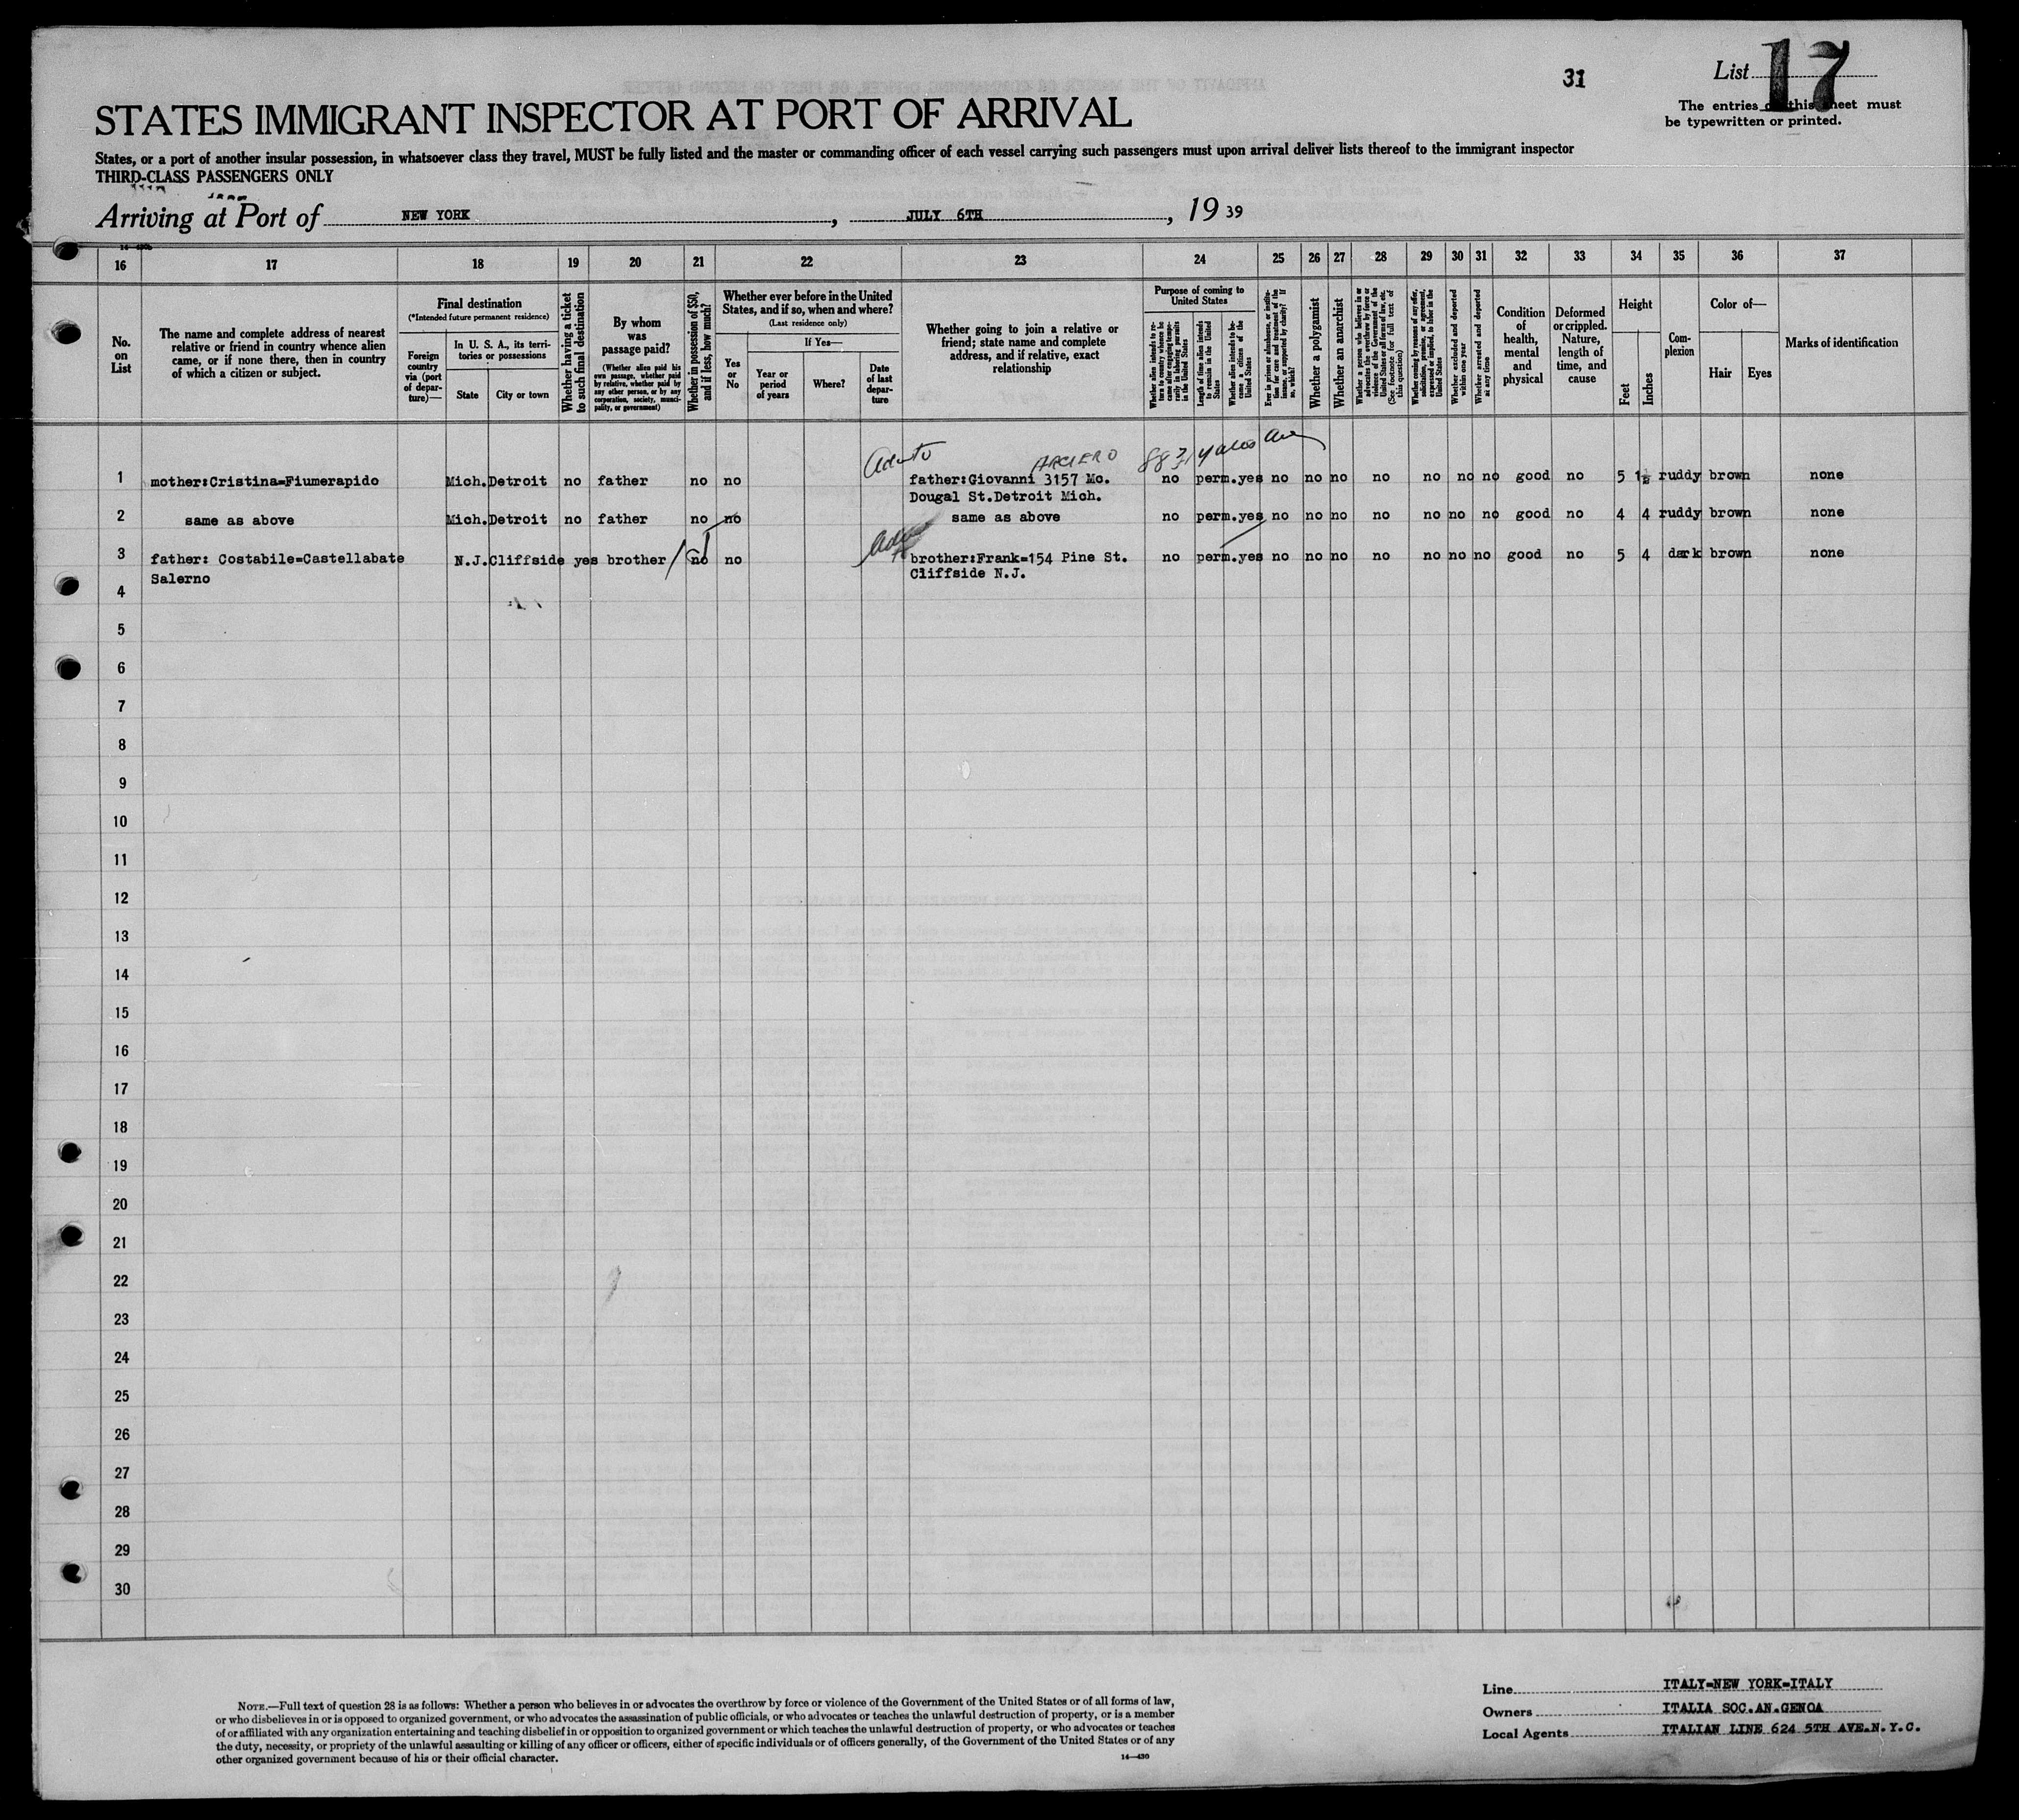 31
List 17
The entries on this sheet must
be typewritten or printed.
STATES IMMIGRANT INSPECTOR AT PORT OF ARRIVAL
States, or a port of another insular possession, in whatsoever class they travel, MUST be fully listed and the master or commanding officer of each vessel carrying such passengers must upon arrival deliver lists thereof to the immigrant inspector
THIRD-CLASS PASSENGERS ONLY
Arriving at Port of NEW YORK, JULY 6TH, 19 39
16 17 18 19 20 21 22 23 24 25 26 27 28 29 30 31 32 33 34 35 36 37
No. on List
The name and complete address of nearest
relative or friend in country whence alien
came, or if none there, then in country
of which a citizen or subject.
Final destination
(*Intended future permanent residence)
Foreign country via (port of departure)—
In U. S. A., its territories or possessions
State
City or town
Whether having a ticket to such final destination
By whom was passage paid?
(Whether alien paid his own passage, whether paid by relative, whether paid by any other person, or by any corporation, society, municipality, or government)
Whether in possession of $50, and if less, how much?
Whether ever before in the United States, and if so, when and where?
(Last residence only)
Yes or No
If Yes—
Year or period of years
Where?
Date of last departure
Whether going to join a relative or
friend; state name and complete
address, and if relative, exact
relationship
Purpose of coming to United States
Whether alien intends to return to country whence he came after engaging temporarily in laboring pursuits in the United States
Length of time alien intends to remain in the United States
Whether alien intends to become a citizen of the United States
Ever in prison or almshouse, or institution for care and treatment of the insane, or supported by charity? If so, which?
Whether a polygamist
Whether an anarchist
Whether a person who believes in or advocates the overthrow by force or violence of the Government of the United States or all forms of law, etc. (See footnote for full text of this question)
Whether coming by reason of any offer, solicitation, promise, or agreement, expressed or implied, to labor in the United States
Whether excluded and deported within one year
Whether arrested and deported at any time
Condition of health, mental and physical
Deformed or crippled. Nature, length of time, and cause
Height
Feet
Inches
Complexion
Color of—
Hair
Eyes
Marks of identification
ARCIERO
1 mother:Cristina=Fiumerapido Mich. Detroit no father no no father:Giovanni 3157 Mc. no perm. yes no no no no no no no good no 5 1½ ruddy brown none
Dougal St.Detroit Mich.
2 same as above Mich. Detroit no father no no same as above no perm. yes no no no no no no no good no 4 4 ruddy brown none
3 father: Costabile=Castellabate N.J. Cliffside yes brother no no brother:Frank=154 Pine St. no perm. yes no no no no no no no good no 5 4 dark brown none
Salerno Cliffside N.J.
4
5
6
7
8
9
10
11
12
13
14
15
16
17
18
19
20
21
22
23
24
25
26
27
28
29
30
NOTE.—Full text of question 28 is as follows: Whether a person who believes in or advocates the overthrow by force or violence of the Government of the United States or of all forms of law,
or who disbelieves in or is opposed to organized government, or who advocates the assassination of public officials, or who advocates or teaches the unlawful destruction of property, or is a member
of or affiliated with any organization entertaining and teaching disbelief in or opposition to organized government or which teaches the unlawful destruction of property, or who advocates or teaches
the duty, necessity, or propriety of the unlawful assaulting or killing of any officer or officers, either of specific individuals or of officers generally, of the Government of the United States or of any
other organized government because of his or their official character.
14—430
Line ITALY=NEW YORK=ITALY
Owners ITALIA SOC.AN.GENOA
Local Agents ITALIAN LINE 624 5TH AVE.N.Y.C.